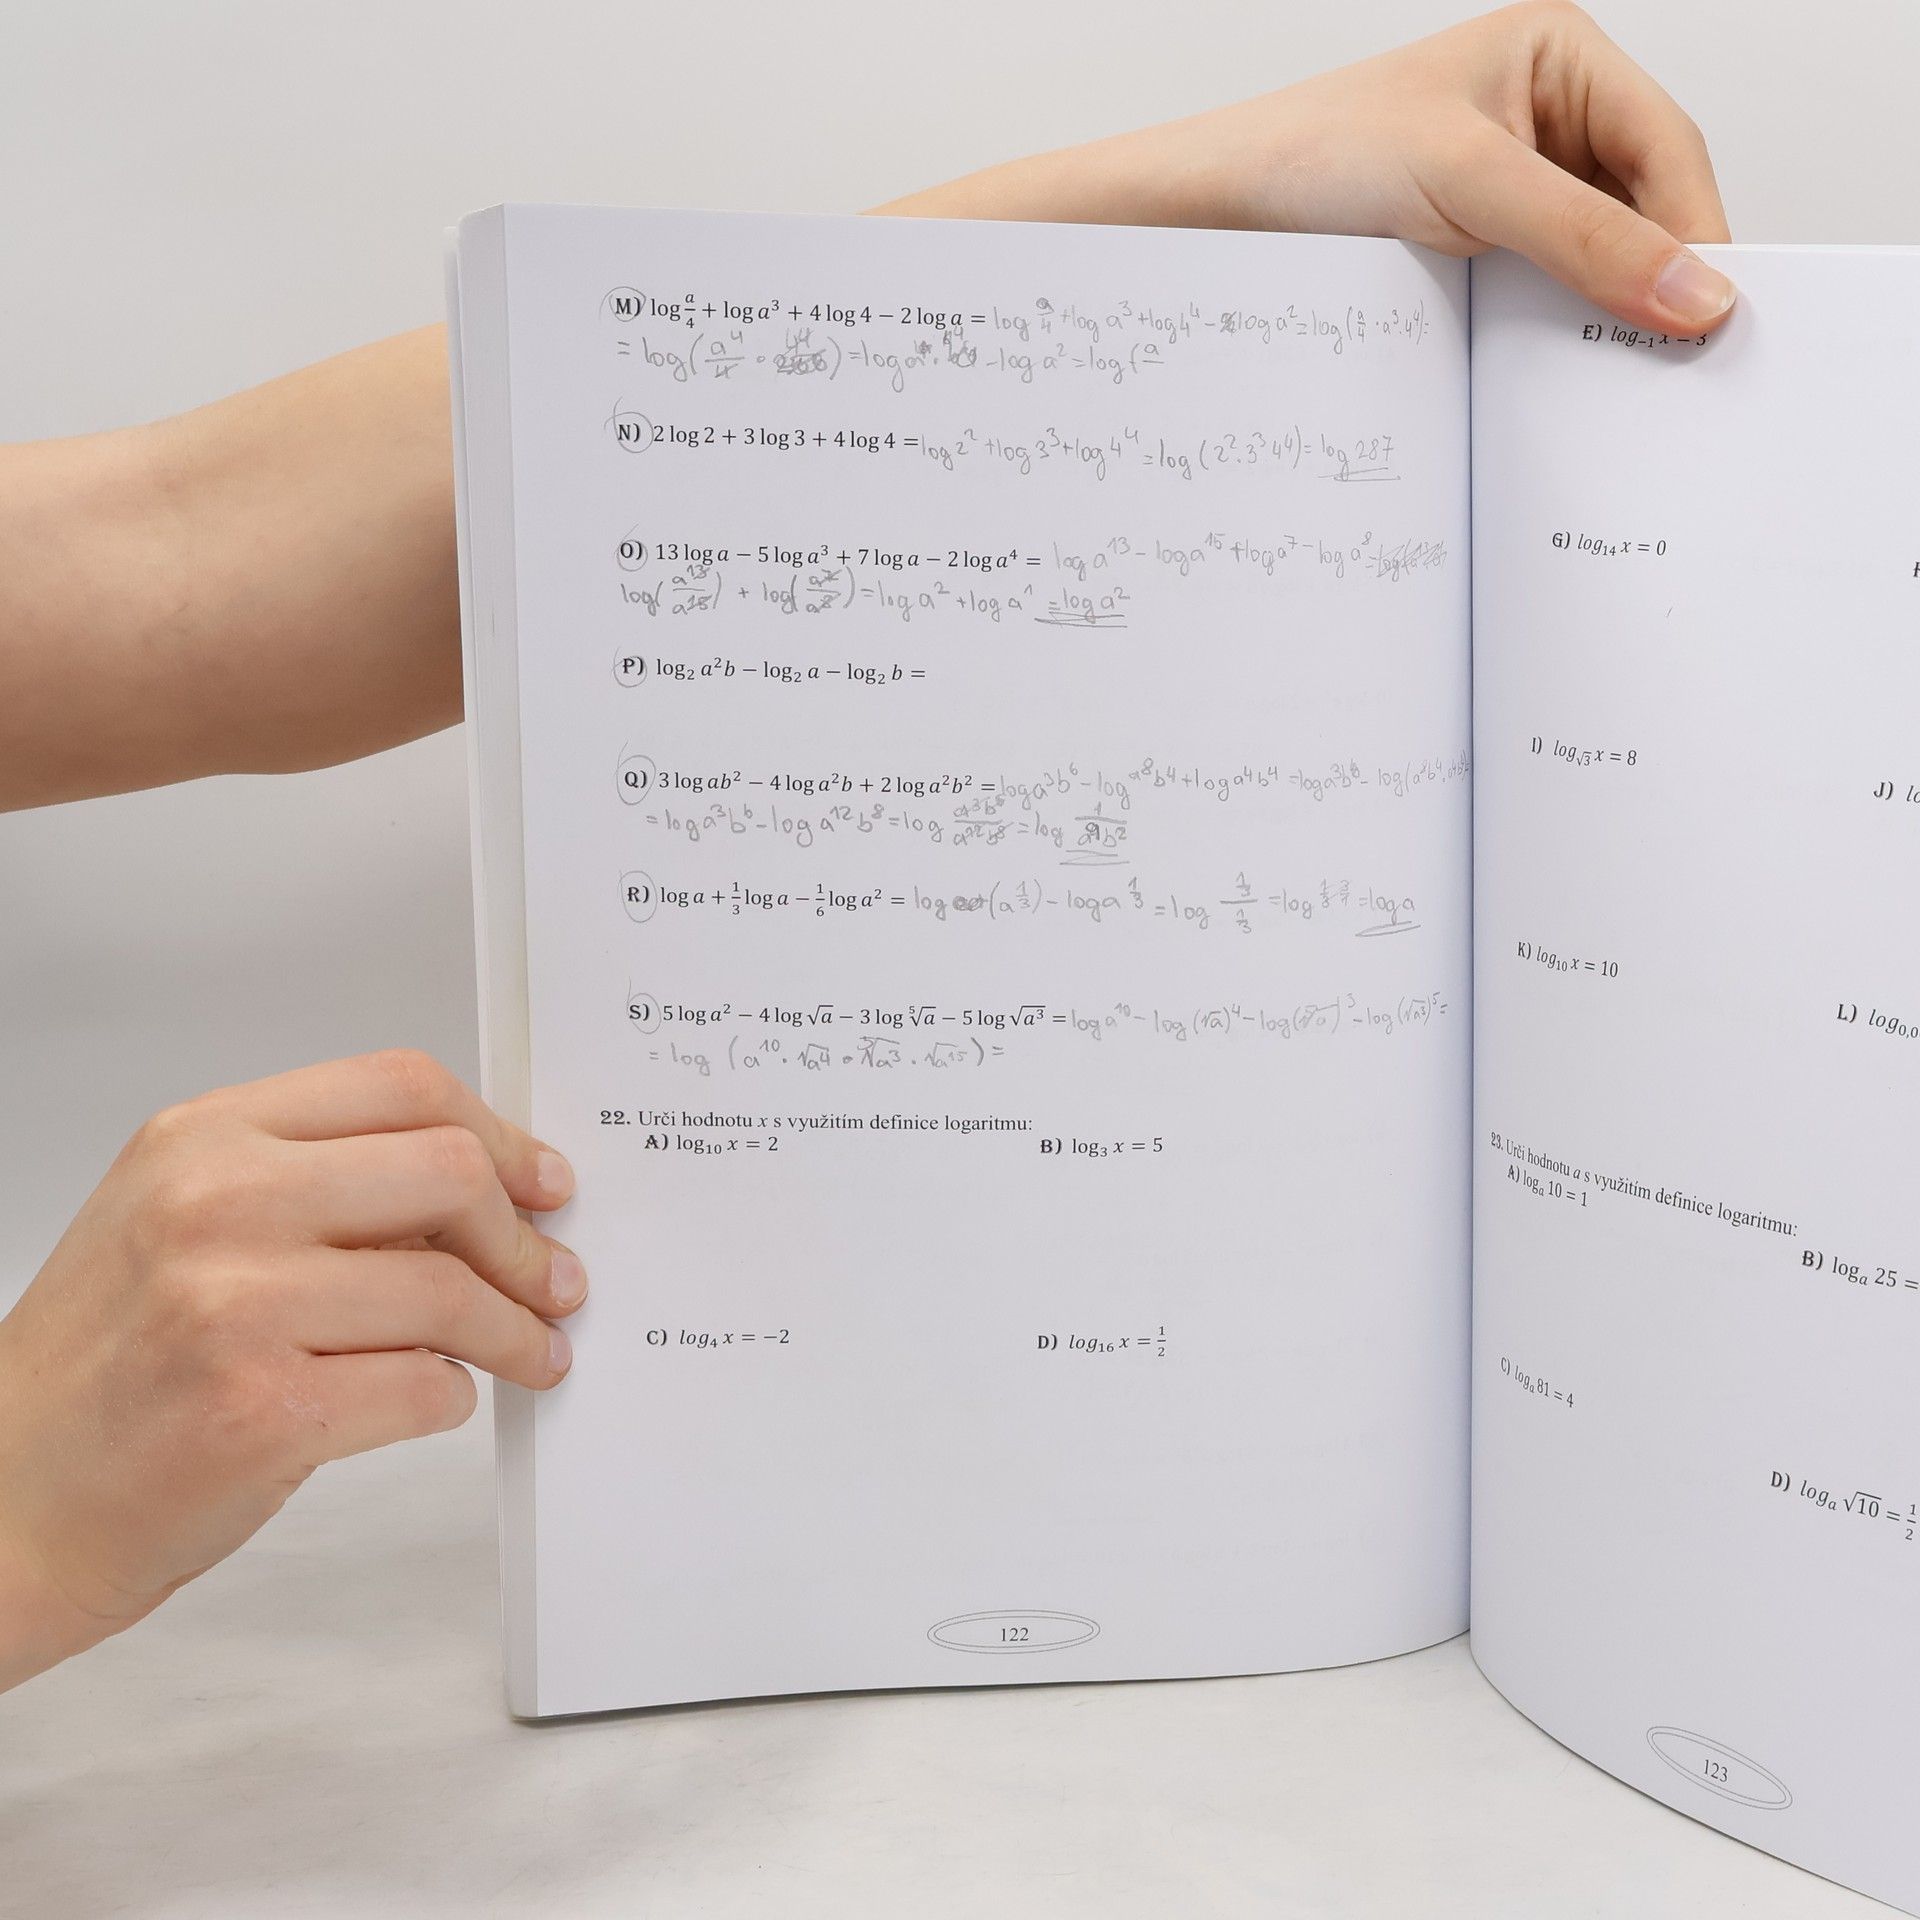 M) log a/4 + log a³ + 4 log 4 − 2 log a = log a/4 + log a³ + log 4⁴ − log a² = log (a/4 · a³ · 4⁴) =
= log ( a⁴/4 · ) = log − log a² = log ( a
N) 2 log 2 + 3 log 3 + 4 log 4 = log 2² + log 3³ + log 4⁴ = log (2² · 3³ 4⁴) = log 287
O) 13 log a − 5 log a³ + 7 log a − 2 log a⁴ = log a¹³ − log a¹⁵ + log a⁷ − log a⁸ =
log( a¹³/a¹⁵ ) + log( a⁷/a⁸ ) = log a² + log a¹ = log a²
P) log₂ a²b − log₂ a − log₂ b =
Q) 3 log ab² − 4 log a²b + 2 log a²b² = log a³b⁶ − log a⁸b⁴ + log a⁴b⁴ = log a³b⁶ − log (a⁸b⁴ · a⁴b⁴) =
= log a³b⁶ − log a¹²b⁸ = log a³b⁶/a¹²b⁸ = log 1/a⁹b²
R) log a + 1/3 log a − 1/6 log a² = log (a 1/3) − log a 1/3 = log 1/3 / 1/3 = log = log a
S) 5 log a² − 4 log √a − 3 log ⁵√a − 5 log √a³ = log a¹⁰ − log (√a)⁴ − log (⁵√a)³ − log (√a³)⁵ =
= log (a¹⁰ · √a⁴ · ⁵√a³ · √a¹⁵) =
22. Urči hodnotu x s využitím definice logaritmu:
A) log₁₀ x = 2 B) log₃ x = 5
C) log₄ x = −2 D) log₁₆ x = 1/2
122
E) log₋₁ x − 3
G) log₁₄ x = 0
I) log√3 x = 8
J)
K) log₁₀ x = 10
L) log₀,₀
23. Urči hodnotu a s využitím definice logaritmu:
A) logₐ 10 = 1
B) logₐ 25 =
C) logₐ 81 = 4
D) logₐ √10 = 1/2
123